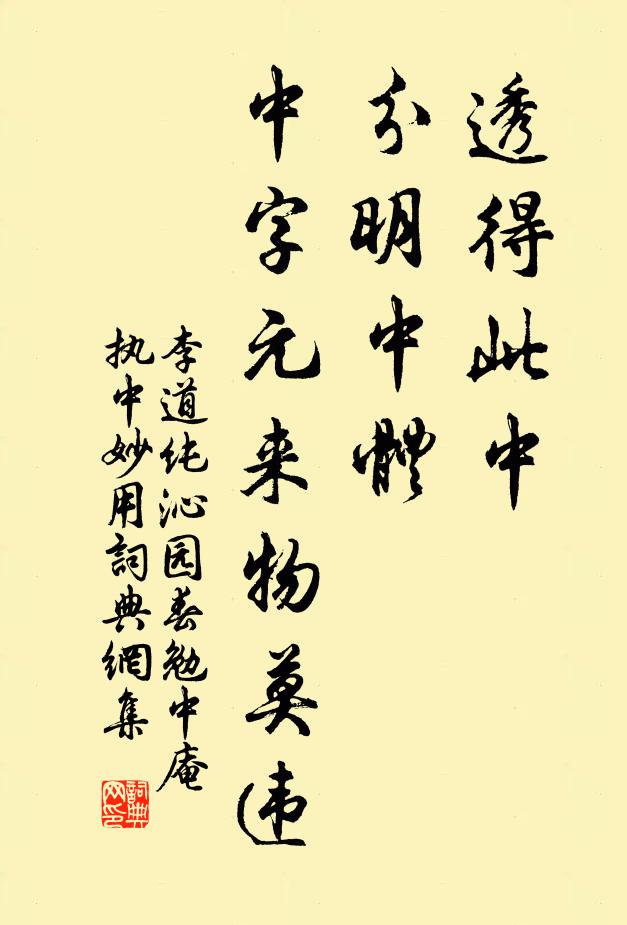 透得此中
分明中體
中字元来物莫违
李道纯沁园春勉中庵
执中妙用詞典網集
詞典
网印